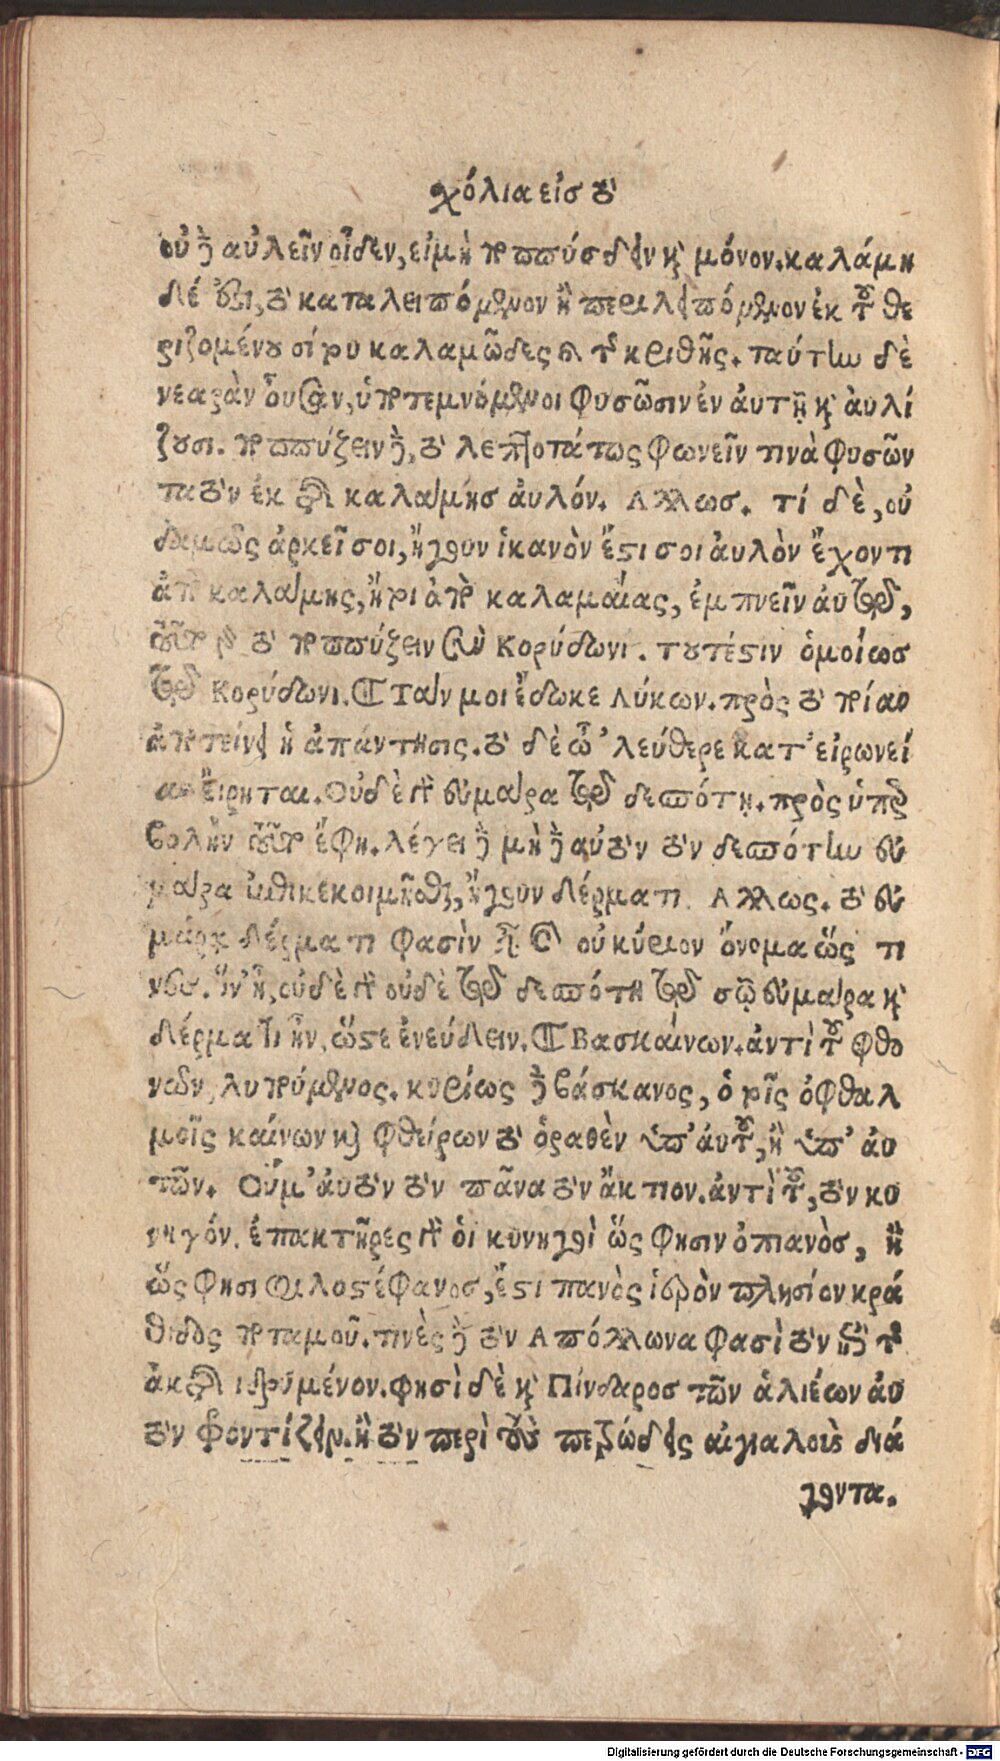 χόλια εἰσ τὸ
οὐ γὰρ αὐλεῖν οἶδεν, εἰ μὴ ποππύσδειν καὶ μόνον. καλάμη
δέ ἐστι, τὸ καταλειπόμενον ἢ περιλειπόμενον ἐκ τοῦ θε
ριζομένου σίτου καλαμῶδες ἐκ τῆς κριθῆς. ταύτην δὲ
νεαρὰν οὖσαν, ὑποτεμνόμενοι φυσῶσιν ἐν ἀυτῇ καὶ ἀυλί
ζουσι. ποππύζειν γὰρ, τὸ λεπτοτάτως φωνεῖν τινὰ φυσῶν
τα τὸν ἐκ τῆς καλάμησ ἀυλόν. Αλλωσ. τί δὲ, οὐ
δαμῶς ἀρκεῖ σοι, ἤγουν ἱκανὸν ἔστι σοι ἀυλὸν ἔχοντι
ἀπὸ καλάμης, ἤτοι ἀπὸ καλαμαίας, ἐμπνεῖν ἀυτῷ,
τοῦτο τὸ ποππύζειν σὺν Κορύδωνι. τουτέστιν ὁμοίωσ
τῷ Κορύδωνι. ¶ Τάν μοι ἔδωκε Λύκων. πρὸς τὸ ποίαν
ἀποτείνει ἡ ἀπάντησις. τὸ δὲ ὦ ’λεύθερε κατ’ εἰρωνεί
αν εἴρηται. Οὐδὲ γὰρ εὐμάρα τῷ δεσπότῃ. πρὸς ὑπερ
βολὴν τοῦτο ἔφη. λέγει γὰρ μὴ γὰρ αὐτὸν τὸν δεσπότην εὐ
μάρα ἐγκεκοιμῆσθαι, ἤγουν δέρματι. Αλλως. τὸ εὐ
μάρᾳ δέρματι φασὶν οὐ κύριον ὄνομα ὥς τι
νες. ἵν’ ᾖ, οὐδὲ γὰρ οὐδὲ τῷ δεσπότῃ τῷ σῷ εὐμάρα καὶ
δέρμα τι ἦν, ὥστε ἐνεύδειν. ¶ Βασκαίνων. ἀντὶ τοῦ φθο
νῶν, λυπούμενος. κυρίως γὰρ βάσκανος, ὁ τοῖς ὀφθαλ
μοῖς καίνων καὶ φθείρων τὸ ὁραθὲν ὑπ’ ἀυτοῦ, ἢ ὑπ’ ἀυ
τῶν. Οὔμ’ ἀυτὸν τὸν πᾶνα τὸν ἄκτιον. ἀντὶ τοῦ, τὸν κυ
νηγόν. ἐπακτῆρες γὰρ ὁι κυνηγοὶ ὥς φησιν ὀπιανὸσ, ἢ
ὥς φησι Φιλοστέφανοσ, ἔστι πανὸς ἱερὸν πλησίον κρά
θιδος ποταμοῦ. τινὲς γὰρ τὸν Απόλλωνα φασὶ τὸν ἐπὶ τῆς
ἀκτῆς ἱδρυμένον. φησὶ δὲ καὶ Πίνδαροσ τῶν ἁλιέων ἀυ
τὸν φροντίζειν. ἢ τὸν περὶ τοὺς πετρώδεις αἰγιαλοὺς διά
γοντα.
Digitalisierung gefördert durch die Deutsche Forschungsgemeinschaft - DFG